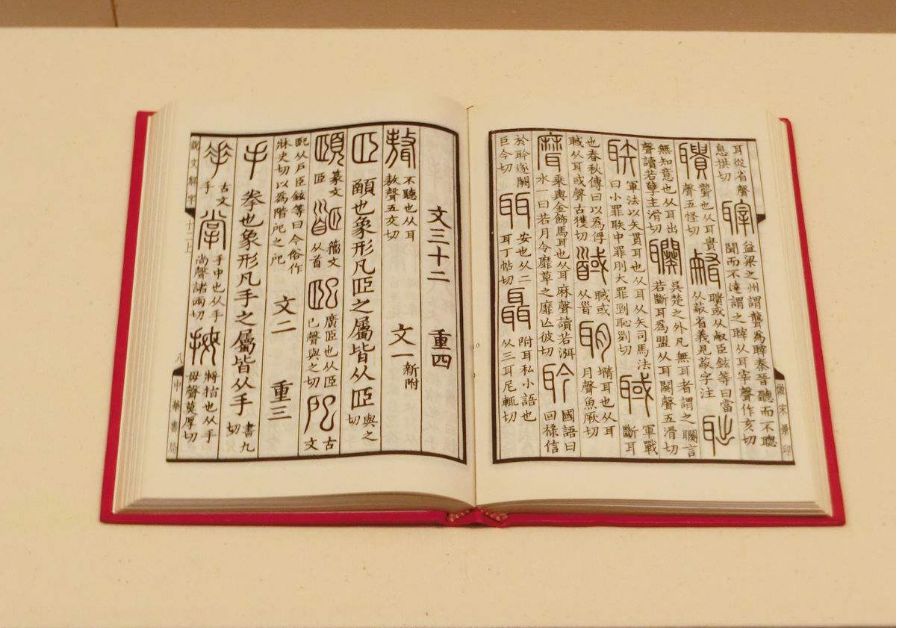 耳從省聲息拱切 䏁 益梁之州謂聾爲䏁秦晉聽而不聰聞而不達謂之䏁从耳宰聲作亥切
聵 聾也从耳貴聲五怪切 聵或从𠭥臣鉉等曰當从蔽省義見蔽字注 聉
無知意也从耳出聲讀若孽五滑切 吳楚之外凡無耳者謂之言若斷耳爲盟从耳闋聲五滑切
聅 軍法以矢貫耳也从耳从矢司馬法曰小罪聅中罪刖大罪剄恥列切 聝 軍戰斷耳
也春秋傳曰以爲俘聝从耳或聲古獲切 馘 聝或从首 墮耳也从耳月聲魚厥切
乘輿金飾馬耳也从耳麻聲讀若渳水一曰若月令靡草之靡亡彼切 聆 國語曰回祿信
於聆遂闕巨今切 聑 安也从二耳丁帖切 聶 附耳私小語也从三耳尼輒切
文三十二 重四
聱 不聽也从耳敖聲五交切 文一 新附
𦣝 顄也象形凡𦣝之屬皆从𦣝與之切
頤 篆文𦣝 籀文从首 巸 廣𦣝也从𦣝巳聲與之切 古文
巸从戶臣鉉等曰今俗作牀史切以爲階戺之戺 文二 重三
手 拳也象形凡手之屬皆从手書九切
古文手 掌 手中也从手尚聲諸兩切 拇 將指也从手母聲莫厚切
說文解字 十二上 八 中華書局